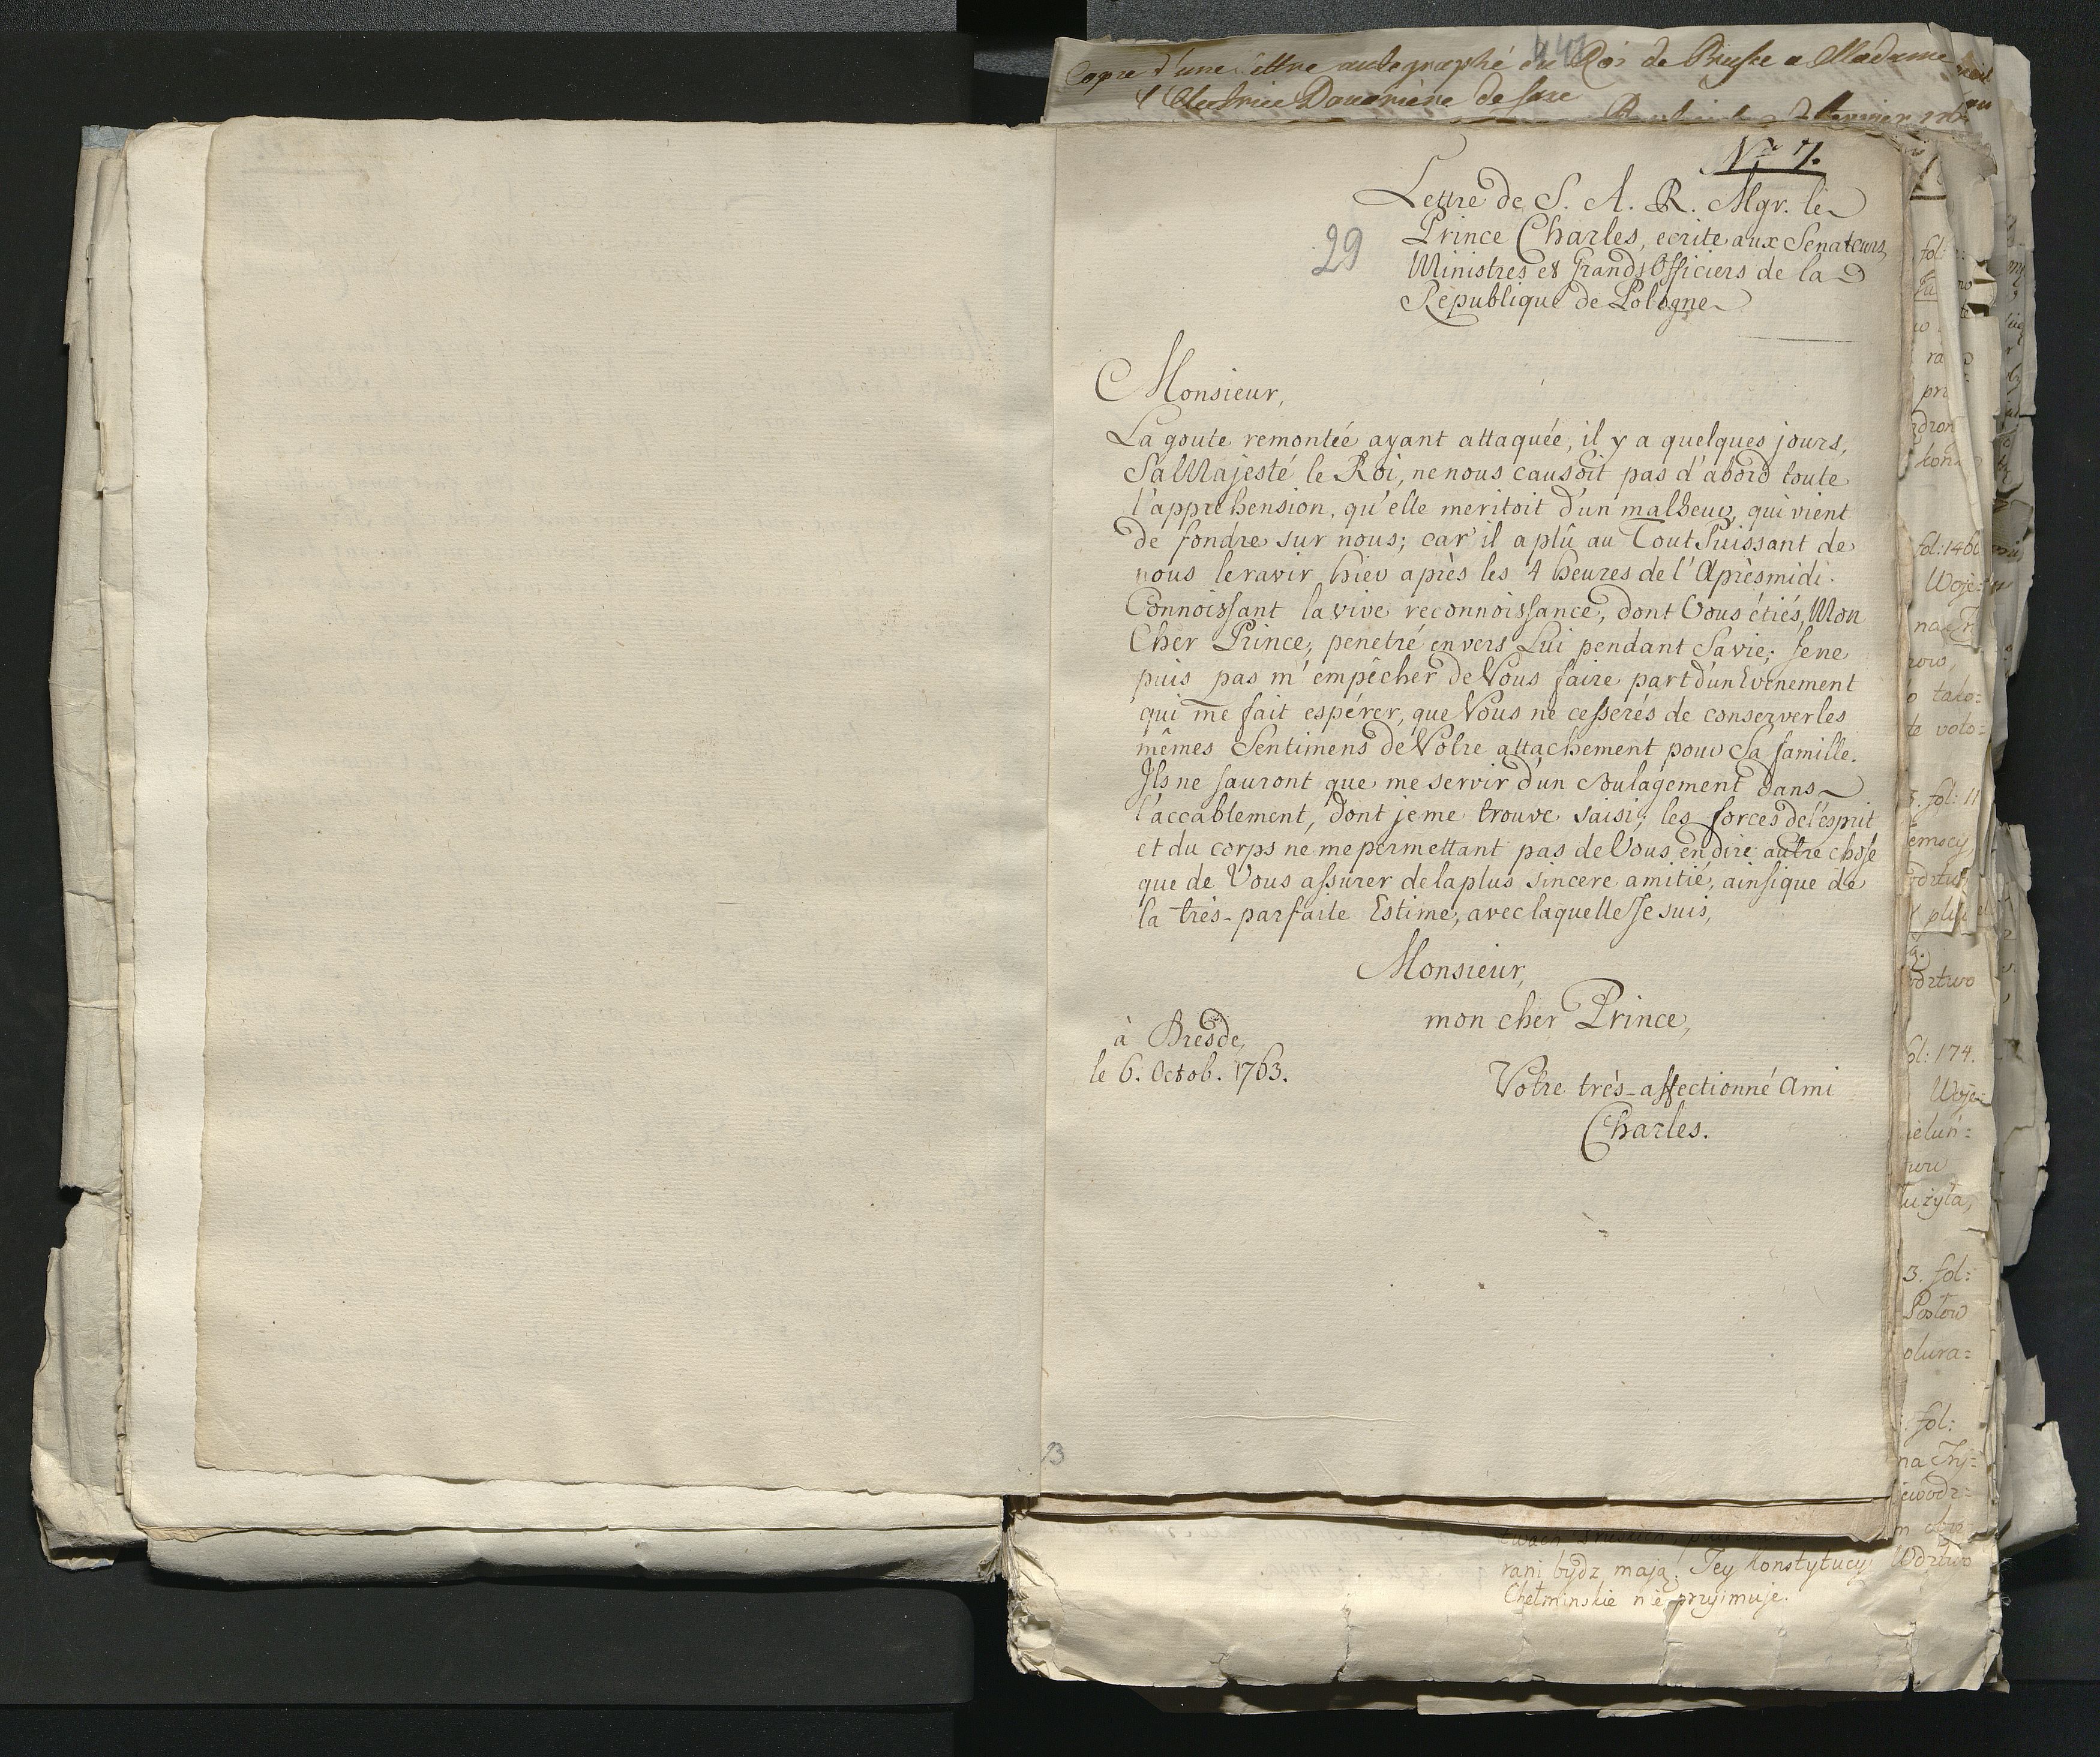 Copie d'une lettre autographe du Roi de Prusse a Madame
l'Electrice Douariere de Saxe
Nro 7.
Lettre de S. A. R. Mgr. le
Prince Charles, ecrite aux Senateurs,
29
Ministres et Grands Officiers de la
République de Pologne
Monsieur,
La goute remontée ayant attaquée, il y a quelques jours,
Sa Majesté le Roi, ne nous causoit pas d'abord toute
l'apprehension, qu'elle meritoit d'un malheur, qui vient
de fondre sur nous; car il a plû au Tout Puissant de
nous le ravir hier après les 4 heures de l'Aprèsmidi.
Connoissant la vive reconnoissance, dont Vous étiés, Mon
Cher Prince, penetré envers Lui pendant Sa vie; Je ne
puis pas m'empêcher de Vous faire part d'un Evenement
qui me fait espérer, que Vous ne cesserés de conserver les
mêmes Sentimens de Votre attachement pour Sa famille.
Ils ne sauront que me servir d'un Soulagement dans
l'accablement, dont je me trouve saisi; les forces de l'esprit
et du corps ne me permettant pas de Vous en dire autre chose
que de Vous assurer de la plus sincere amitié, ainsi que de
la très-parfaite Estime, avec laquelle Je suis,
Monsieur,
mon cher Prince,
à Dresde,
le 6. Octob. 1763.
Votre très-affectionné Ami
Charles.
B
fol: 146
Woje-
fol: 174.
Woje-
3. fol:
Posłow
fol:
rani bydz mają. Tey Konstytucyi Wdztwo
Chełminskie nie przyimuje.